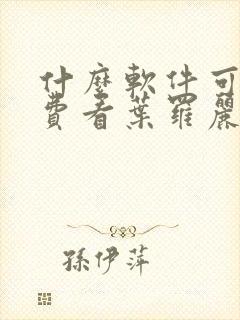 什麼軟件可
費看葉羅麗
孫伊萍